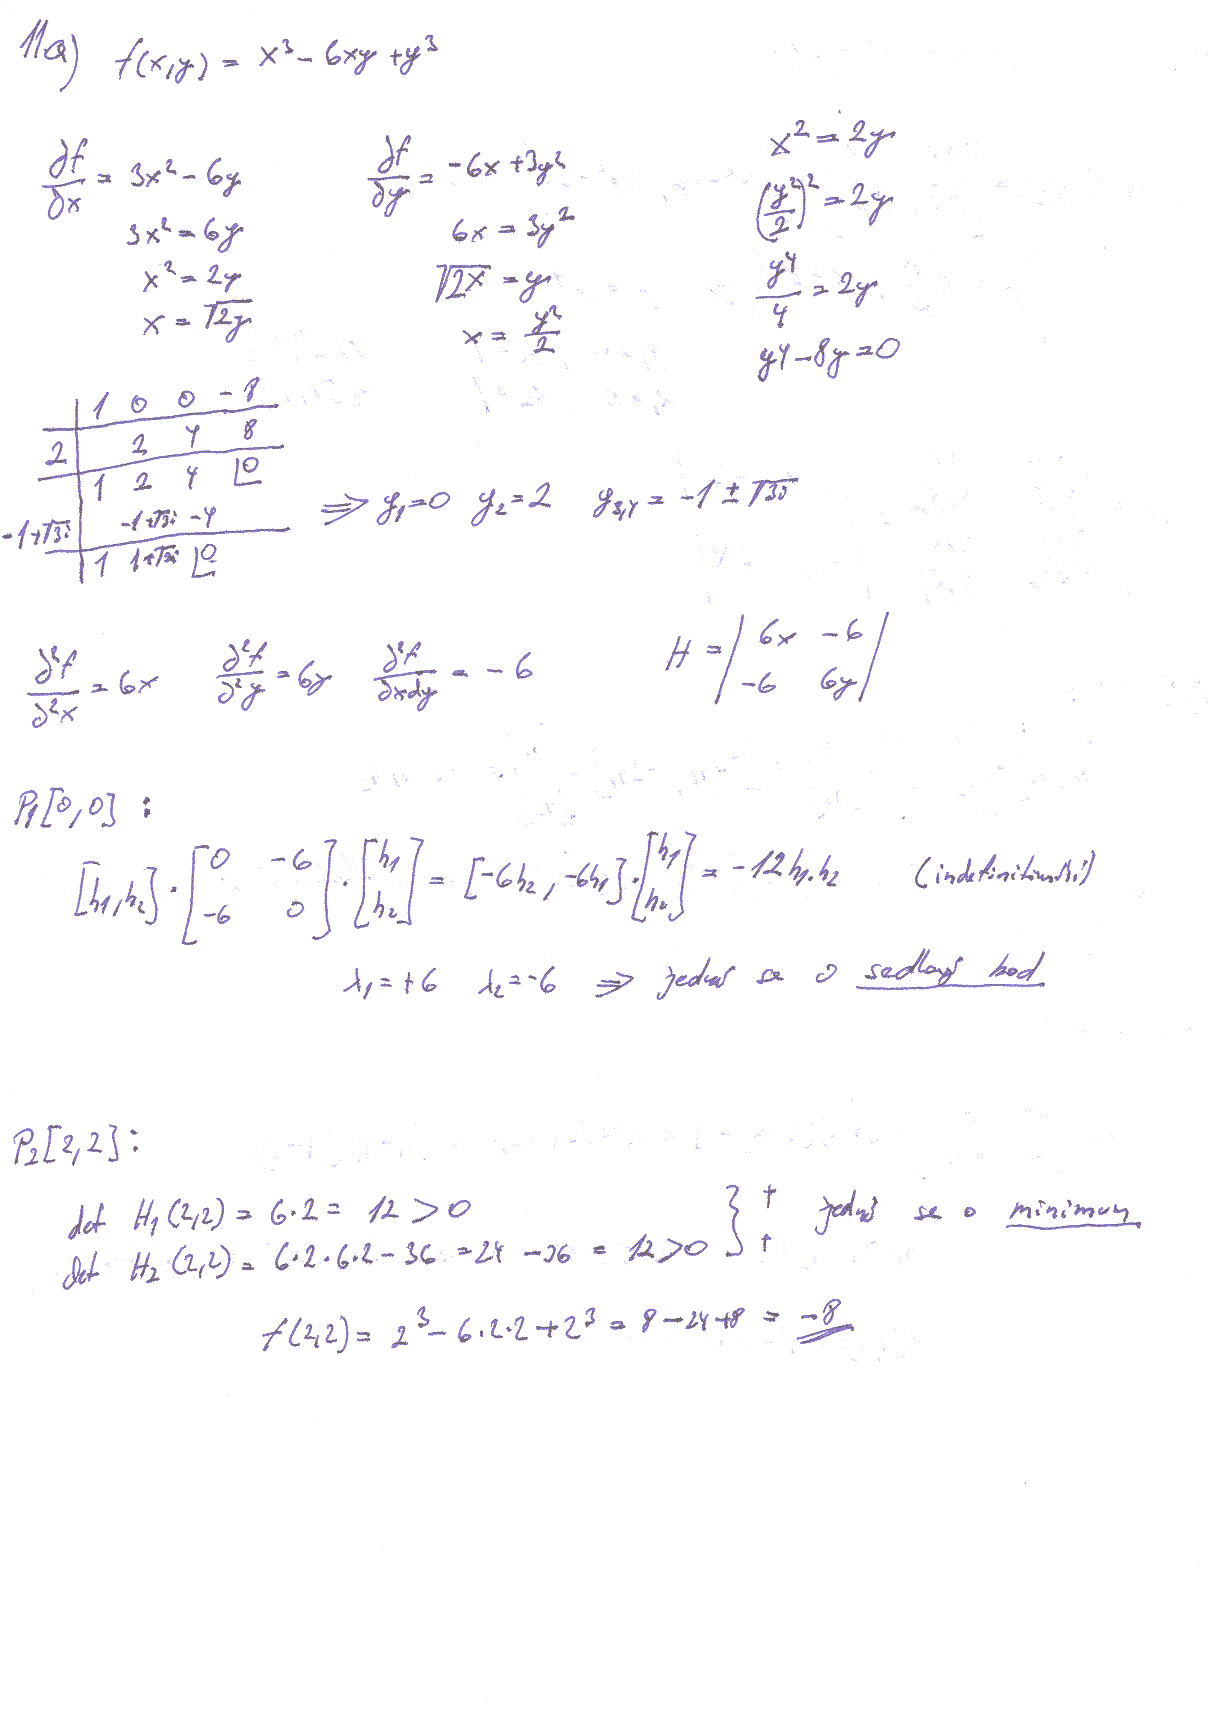 11a) f(x,y) = x³ - 6xy + y³
∂f/∂x = 3x² - 6y
3x² = 6y
x² = 2y
x = √2y
∂f/∂y = -6x + 3y²
6x = 3y²
√2x = y
x = y²/2
x² = 2y
(y²/2)² = 2y
y⁴/4 = 2y
y⁴ - 8y = 0
1 0 0 -8
2 2 4 8
1 2 4 0
-1+√3i -1+√3i -4
1 1+√3i 0
⇒ y₁=0 y₂=2 y₃,₄ = -1 ± √3i
∂²f/∂²x = 6x ∂²f/∂²y = 6y ∂²f/∂x∂y = -6 H = | 6x -6 |
| -6 6y |
P₁[0,0] :
[h₁,h₂] · [0 -6; -6 0] · [h₁; h₂] = [-6h₂, -6h₁] · [h₁; h₂] = -12h₁·h₂
λ₁ = +6 λ₂ = -6 ⇒ jedná se o sedlový bod
P₂[2,2] :
det H₁(2,2) = 6·2 = 12 > 0 } + jedná se o minimum
det H₂(2,2) = 6·2·6·2 - 36 = 24 - 36 = 12 > 0 } +
f(2,2) = 2³ - 6·2·2 + 2³ = 8 - 24 + 8 = -8